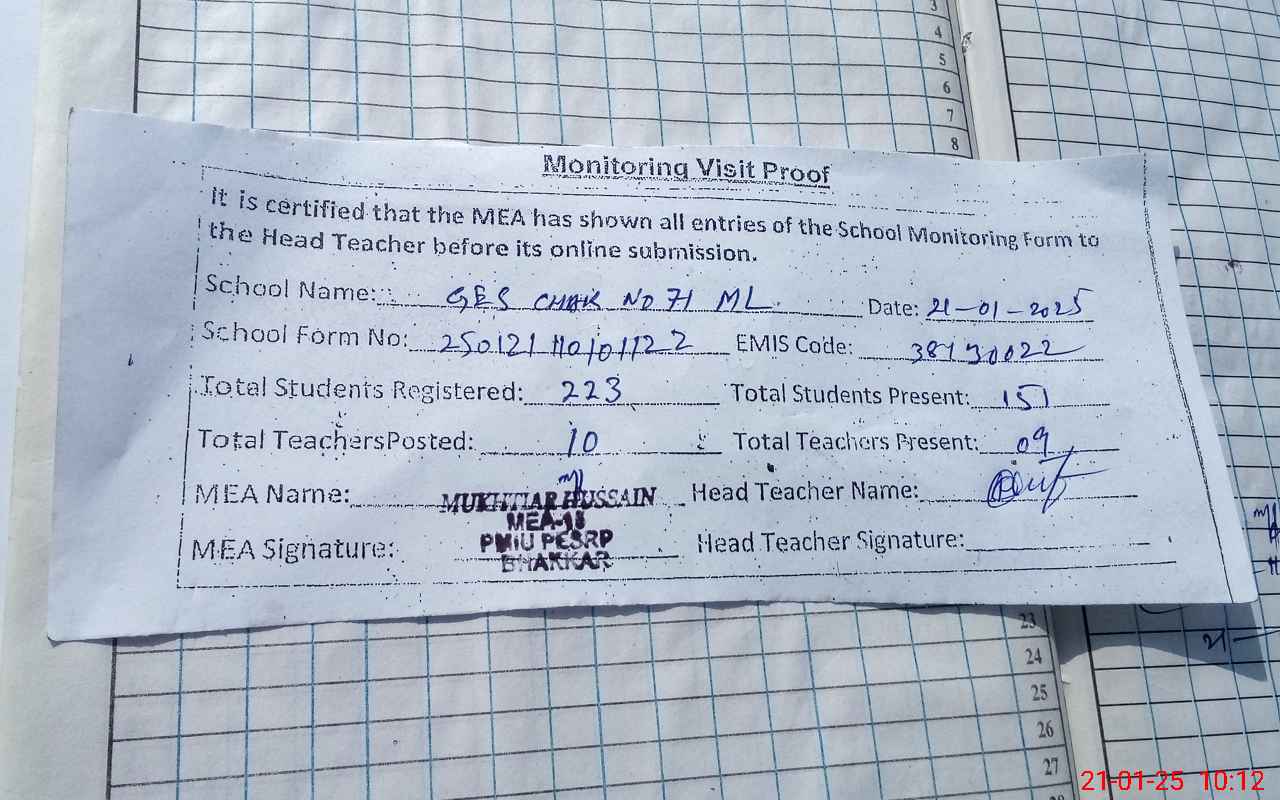 3
4
5
6
7
8
Monitoring Visit Proof
It is certified that the MEA has shown all entries of the School Monitoring Form to
the Head Teacher before its online submission.
School Name: GES CHAK NO 71 ML Date: 21-01-2025
School Form No: EMIS Code:
Total Students Registered: 223 Total Students Present: 151
Total TeachersPosted: 10 Total Teachers Present: 09
MEA Name: MUKHTIAR HUSSAIN Head Teacher Name:
MEA-18
MEA Signature: PMIU PESRP Head Teacher Signature:
BHAKKAR
23
24
25
26
27
21-01-25 10:12